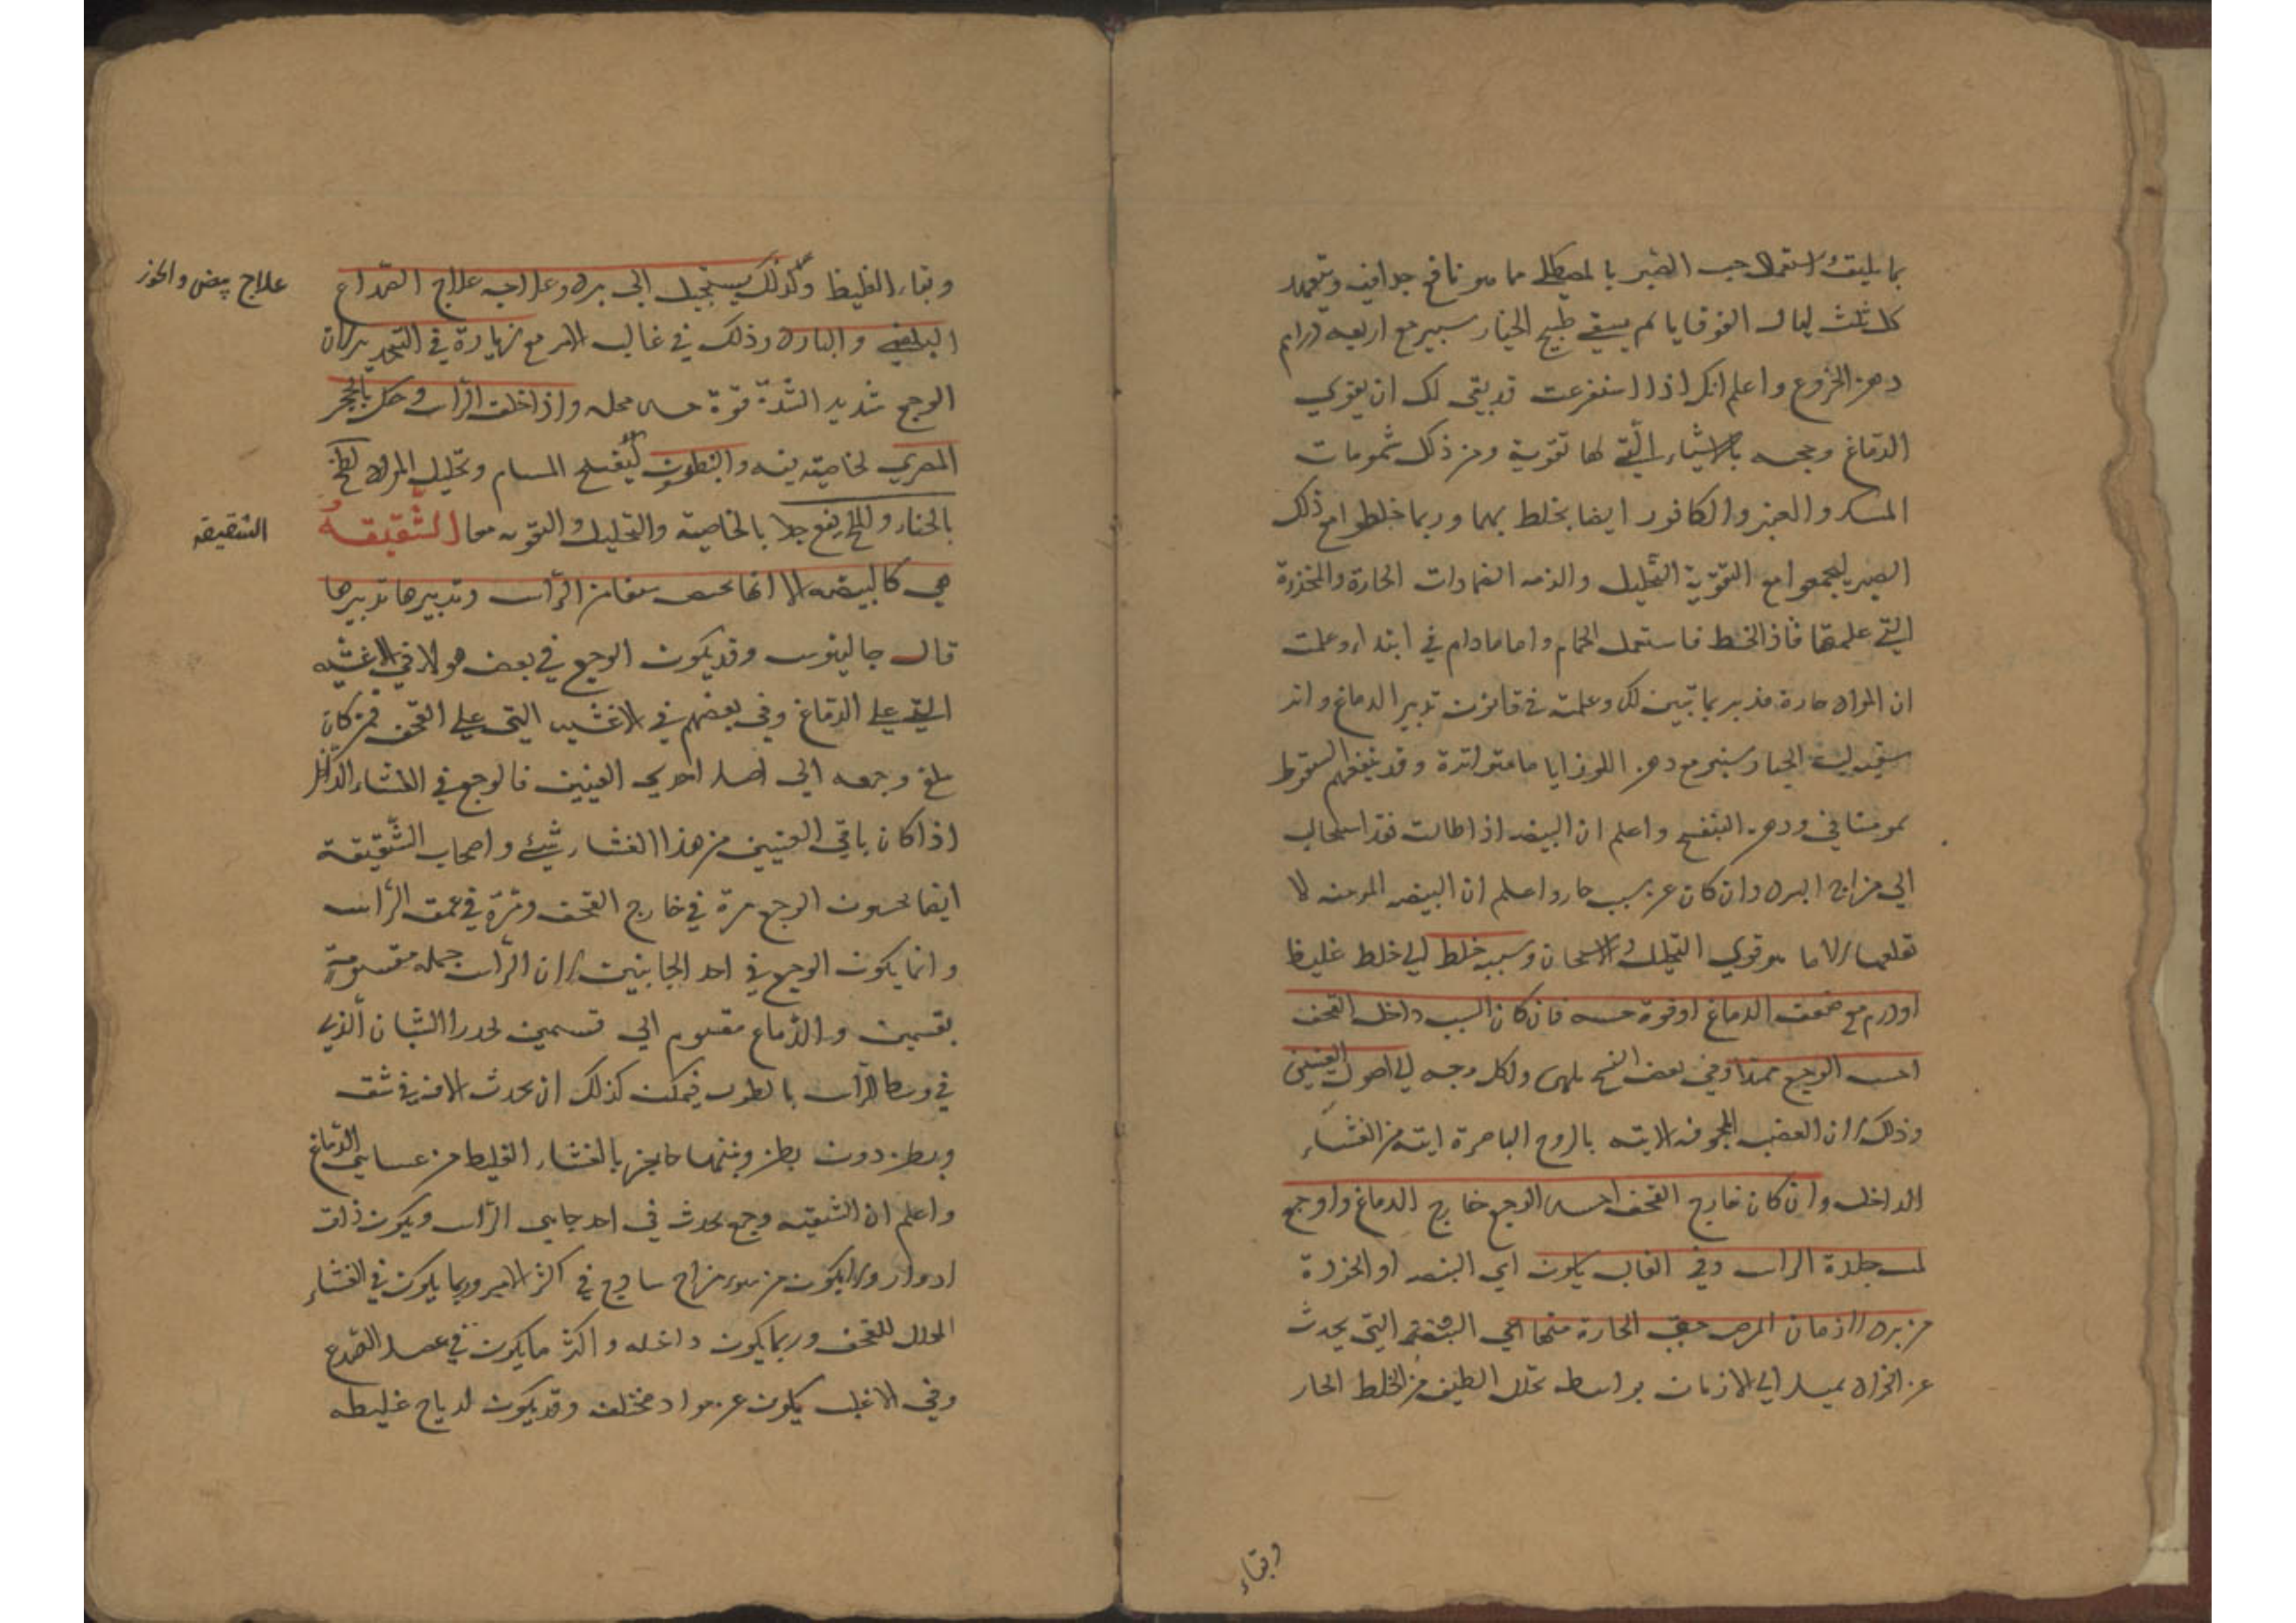 بما يليق استعمال حب الصبر بالمصطكى مما هو نافع جدا فيه ويتعهد
كل ثلث ليال القوقايا ثم يسقى طبيخ الخيار سنبر مع اربعة دراهم
دهن الخروع واعلم انك اذا استفرغت قد بقي لك ان يقوي
الدماغ وحجبه بالاشياء التي لها تقوية ومن ذلك شمومات
المسك والعنبر والكافور ايضا يخلط بهما وربما خلطوا مع ذلك
الصبر ليجمعوا مع التقوية التحليل والزمه الضمادات الحارة والمخدرة
التي علمتها فاذا انحط فاستعمل الحمام واما مادام في ابتداء وعلمت
ان المواد حارة فدبر بما تبين لك وعلمته في قانون تدبير الدماغ وان
الخيار سنبر مع دهن اللوز اياما متواترة وقد ينفعهم السعوط
بموميائي ودهن البنفسج واعلم ان البيضه اذا طالت فقد استحالت
الى مزاج البرد وان كان عن سبب حار واعلم ان البيضه المزمنه لا
تقلعها الا ما هو قوي التحليل والاسخان وسببه خلط اي خلط غليظ
او ورم مع ضعف الدماغ او قوة حسه فان كان السبب داخل القحف
احس الوجع ممتدا وفي بعض النسخ ولكل وجه الى اصول العينين
وذلك لان العصب المجوفه الاتيه بالروح الباصرة اتيه من الغشاء
الداخل وان كان خارج القحف احس الوجع خارج الدماغ واوجع
لمس جلدة الراس وفي الغالب يكون اي البيضه او الخوذة
من برد لازمان المرض حتى الحارة منها اي البيضة التي يحدث
عن المواد يميل الى الازمان بواسطه تحلل اللطيف من الخلط الحار
وبقاء
وبقاء الغليظ وكذلك يستحيل الى برد وعلاجه علاج الصداع
البلغمي والبارد وذلك في غالب الامر مع زيادة في التخدير لان
الوجع شديد لشدة قوة حس محله واذا حلق الراس وحك بالحجر
المصري لخاصيته فيه والنطرون ليفتح المسام وتحليل المواد لطخ
بالحناء والملح ينفع جدا بالخاصية والتحليل والتقويه معا الشقيقة
هي كالبيضه الا انها تخص شقا من الراس وتدبيرها تدبيرها
قال جالينوس وقد يكون الوجع في بعض هولاء في الاغشيه
التي على الدماغ وفي بعضهم في الاغشيه التي على القحف فمن كان
بلغ وجعه الى اصل احدى العينين فالوجع في الغشاء الداخل
اذا كان باقي العينين من هذا الغشاء شيء واصحاب الشقيقة
ايضا يحسون الوجع مرة في خارج القحف ومرة في عمق الراس
وانما يكون الوجع في احد الجانبين لان الراس جمله مقسومة
بقسمين والدماغ مقسوم الى قسمين الشان الذي
في وسط الراس بالطول فيمكن كذلك ان يحدث الافة في شق
وبطن دون بطن وبينهما حاجز بالغشاء الغليظ من غشايي الدماغ
واعلم ان الشقيقه وجع يحدث في احد جانبي الراس ويكون ذات
ادوار ولا يكون من سوء مزاج ساذج في اكثر الامر وربما يكون في الغشاء
المجلل للقحف وربما يكون داخله واكثر ما يكون في عضل الصدغ
وفي الاغلب يكون عن مواد مختلفه وقد يكون لرياح غليظه
علاج بيضه والخوذ
الشقيقه